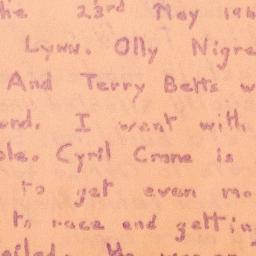 he 23rd May 196
Lynn. Olly Nigre
And Terry Betts w
ond. I went with
ole. Cyril Crane is
to get even mo
to race and getting